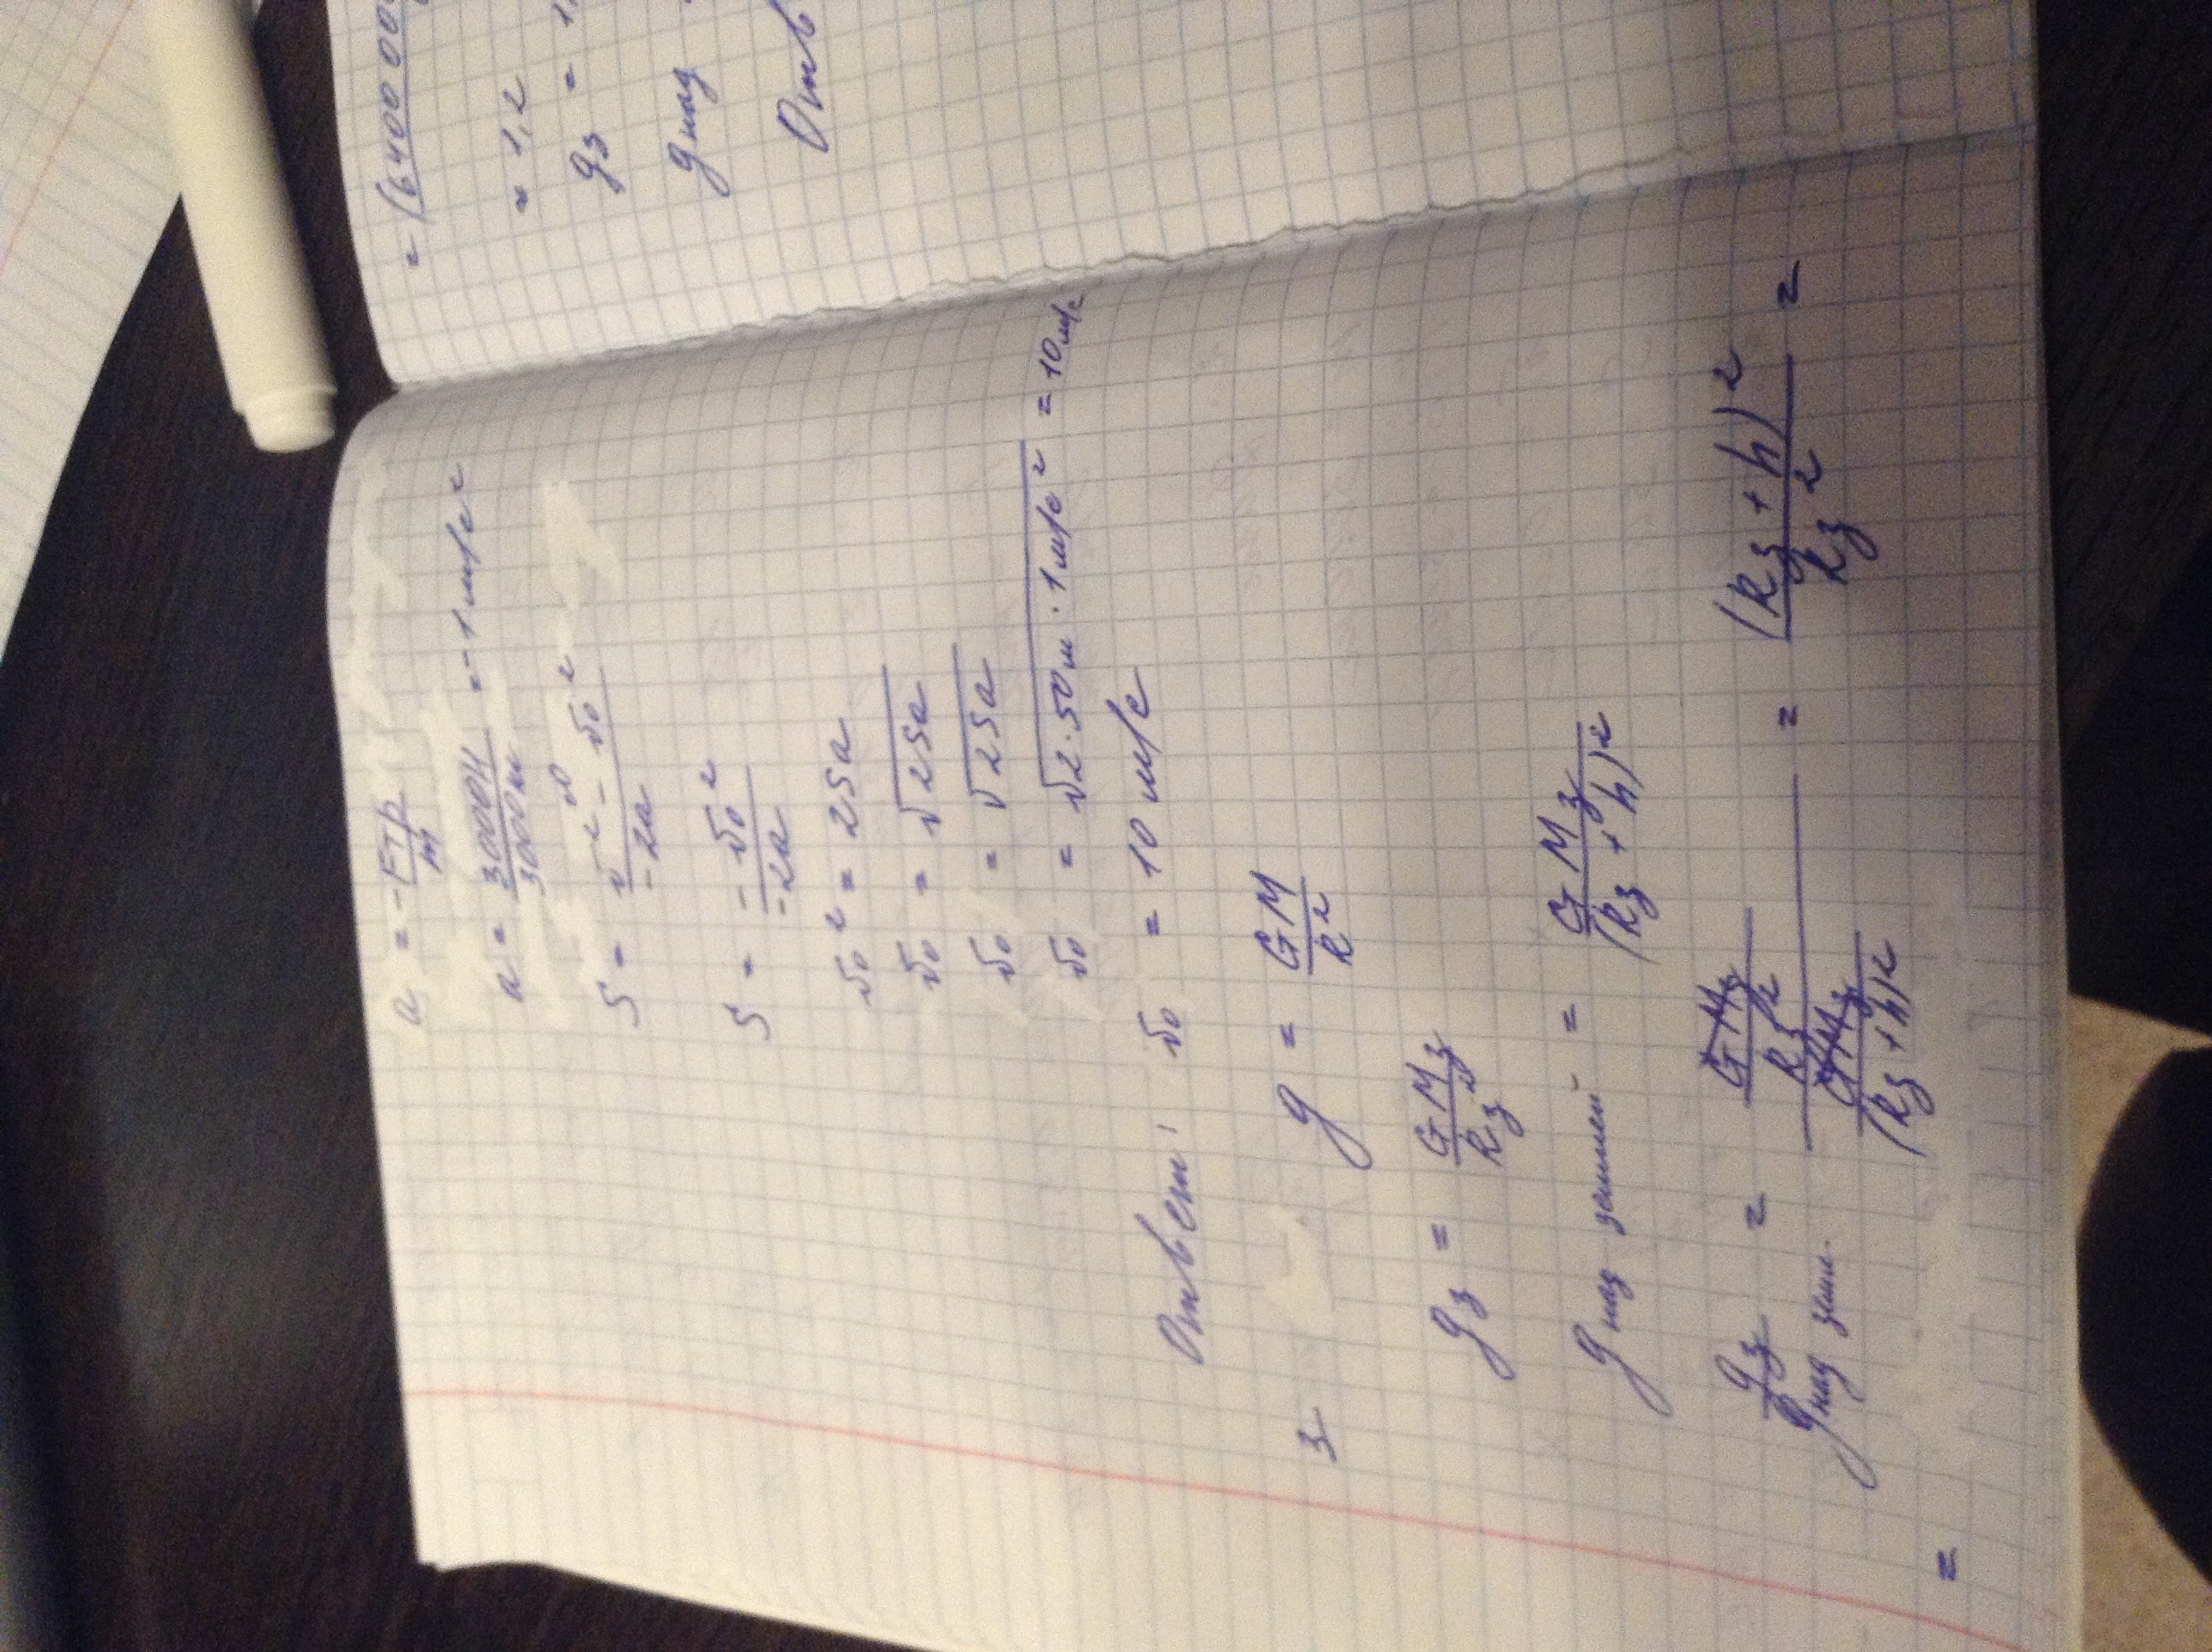 a = -Fтр/m
a = 3000Н/3000кг = -1 м/с²
S = v² - v₀²/-2a 0
S = -v₀²/-2a
v₀² = 2Sa
v₀ = √2Sa
v₀ = √2Sa
v₀ = √2·50м·1м/с² = 10м/с
Ответ: v₀ = 10 м/с
3 g = GM/R²
gз = GMз/Rз²
g над землей = GMз/(Rз + h)²
gз/g над земл. = GMз/Rз² / GMз/(Rз+h)² = (Rз + h)²/Rз² =
=
= (6400 000
≈ 1,2
gз = 1,
g над
Отв